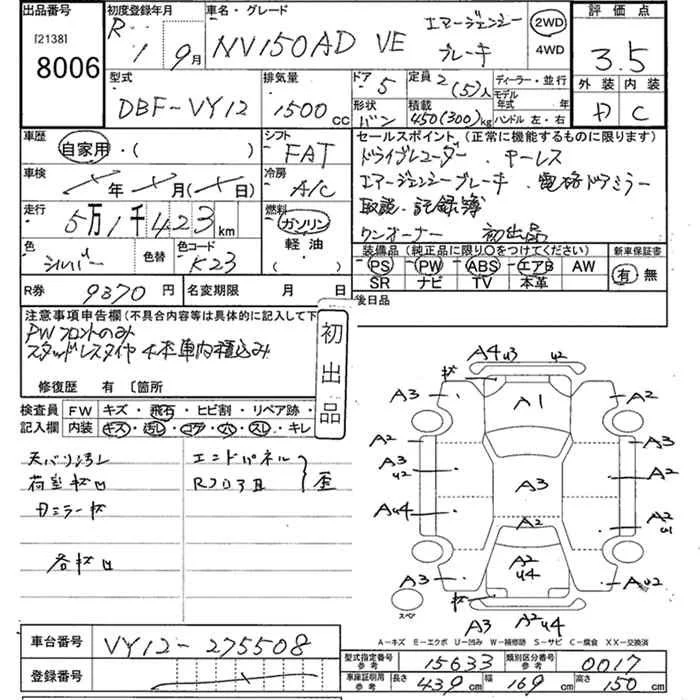 出品番号
[2138]
8006
初度登録年月
R 1 9月
車名・グレード
NV150AD VE エマージェンシー
ブレーキ
2WD
4WD
評価点
3.5
外装 内装
C
型式
DBF-VY12
排気量
1500 cc
ドア 5
形状
バン
定員
2(5)人
積載
450(300)kg
ディーラー・並行
モデル
年式 年
ハンドル 左・右
車歴
自家用・( )
車検
年 月( 日)
走行
5万1千423km
色
シルバー
色替
色コード
K23
シフト
FAT
冷房
A/C
燃料
ガソリン
軽油
( )
セールスポイント(正常に機能するものに限ります)
ドライブレコーダー . キーレス
エマージェンシーブレーキ . 電格ドアミラー
取説・記録簿
ワンオーナー 初出品
装備品(純正品に限り○をつけてください)
PS PW ABS エアB AW
SR ナビ TV 本革
新車保証書
有 無
R券 9370円
名変期限 月 日
後日品
注意事項申告欄(不具合内容等は具体的に記入して下
PWフロントのみ
スタッドレスタイヤ4本車内積込み
修復歴 有 〔箇所
初出品
検査員
記入欄
FW キズ・飛石・ヒビ割・リペア跡・
内装 キズ・汚レ・コゲ・穴・スレ・キレ
天バリ汚レ
荷室キズ凹
エンドパネル
歪
A4 U3 U2
A3
A1
A2
A2
A3
A3 U2
A3
A2
AU4
A2
A2 U1
A3
A2 U4
AU2
A3
A2U4
スペア
A-キズ E-エクボ U-凹み W-補修跡 S-サビ C-腐食 XX-交換済
車台番号
VY12-275508
登録番号
型式指定番号
参考
15633
類別区分番号
参考
0017
車庫証明用
参考
長さ 439cm 幅 169cm 高さ 150cm